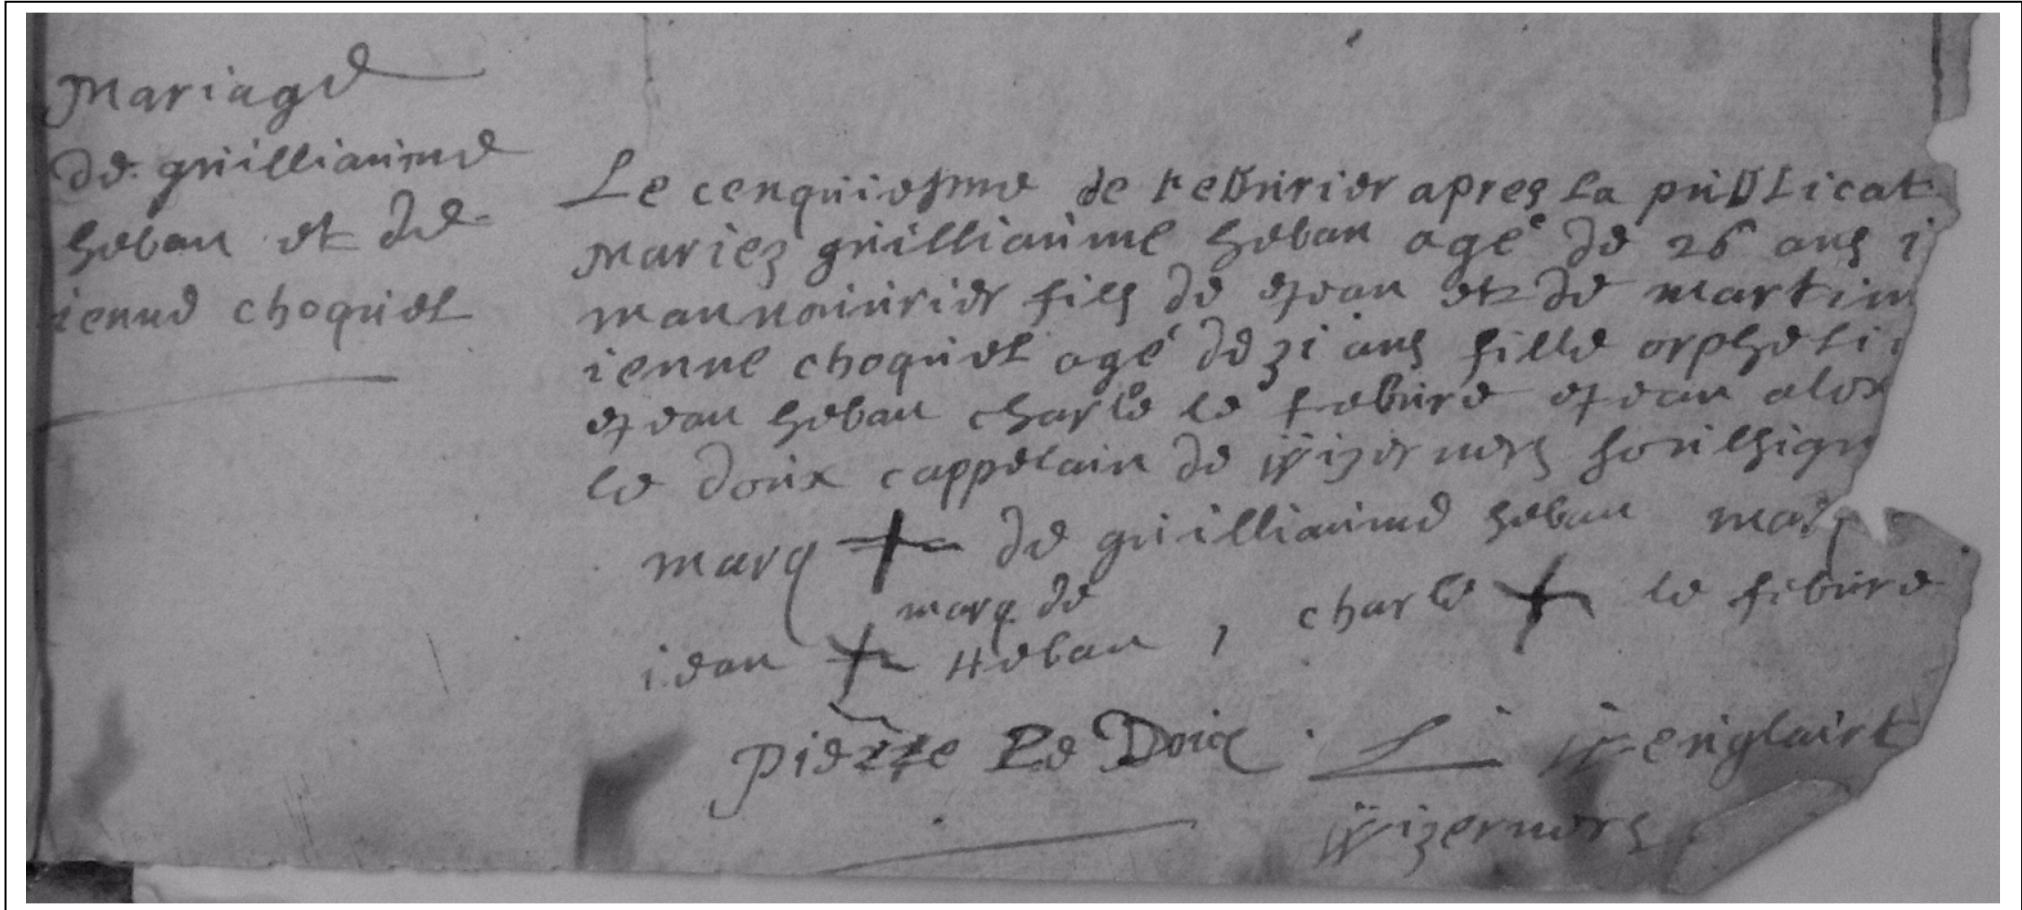 Mariage
de guilliaume
heban et de
ienne choquet
Le cenquiesme de febvrier apres la publicat
Mariez guilliaume heban agé de 26 ans
mannouvrier fils de jean et de martin
ienne choquet agé de 31 ans fille orpheli
jean heban charle le febvre jean alox
le doux cappelain de wizernes soulsign
marq + de guilliaume heban mar
marq de
iean + Heban , charle + le febvre
pierre Le Doux L wenglairt
wizernes